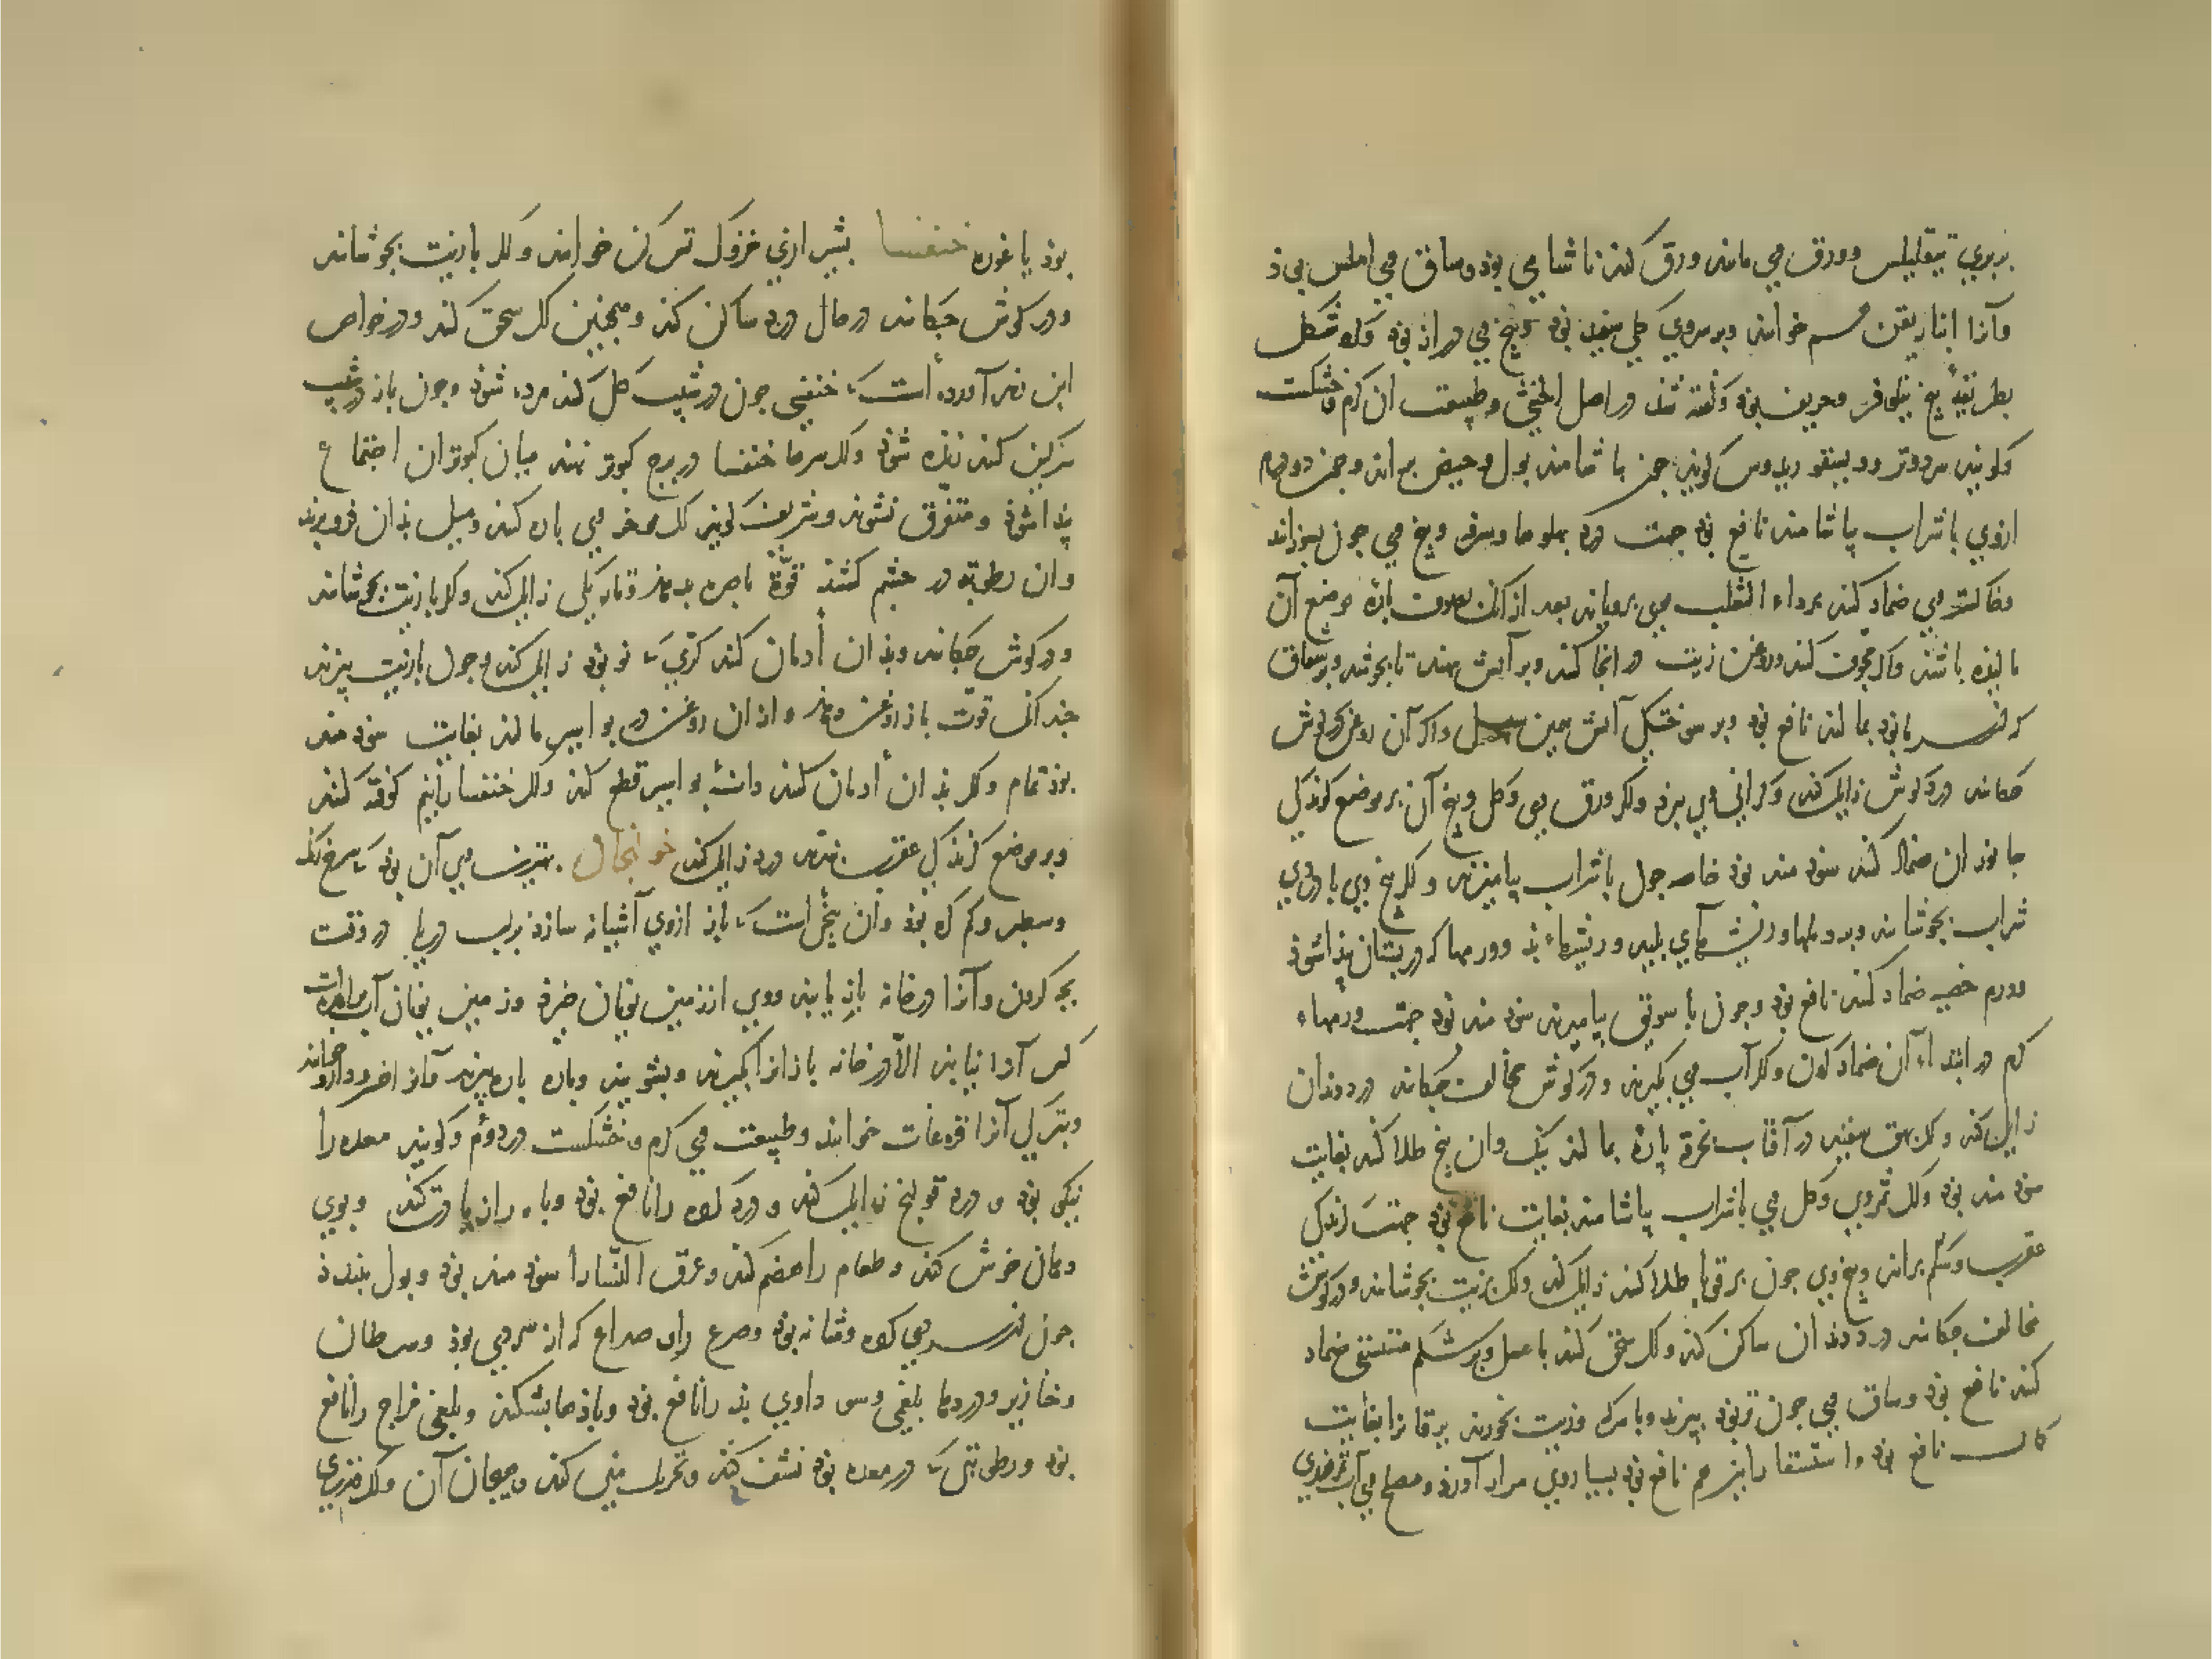 بربری تیقلیلس وورق وی مانند ورق کندنا شامی بوذ وساق وی املس بی ذ
وآنرا انتاریقن هم خوانند وبر سروی کلی سفید بوذ وبیخ وی دراز بوذ وکرد شکل
بطریقهٔ بیخ نیلوفر وحریف بوذ وکفته شد در اصل الخنثی وطبیعت ان کرم وخشکست
وکویند سردوتر ودیسقوریدوس کویند چون بیاشامند بول وحیض براند وچون دودرم
ازوی باشراب بیاشامند نافع بوذ جهت درد پهلوها وسرفه وبیخ وی چون بسوزانند
وخاکستر وی ضماد کنند برداء الثعلب موی برویاند بعد از آنک بصوف پاره موضع آن
مالیذه باشند واکر مجوف کنند وروغن زیت در انجا کنند وبر آتش نهند تا بجوشد وبرشقاق
که از سرما بوذ بمالند نافع بوذ وبر سوختگی آتش همین سبیل واکر آن روغن در کوش
چکانند درد کوش زایل کند وکرانی وی ببرد واکر ورق وی وکل وبیخ آن بر موضع کزندکی
جانوران ضماد کنند سوذ مند بوذ خاصه چون باشراب بیامیزند واکر بیخ وی با دردی
شراب بجوشانند وبر دملها وریشهای پلید وریشهاء بذ وورمها که در پستان پیذا شوذ
وورم خصیه ضماد کنند نافع بوذ وچون با سویق بیامیزند سوذ مند بوذ جهت ورمهاء
کرم در ابتداء آن ضماد کردن واکر آب وی بکیرند ودر کوش مخالف چکانند درد دندان
زایل کند واکر بهق سفید در آفتاب بخرقه پاره بمالند نیک وان بیخ طلا کنند بغایت
سوذ مند بوذ واکر ثمر وی وکل وی باشراب بیاشامند بغایت نافع بوذ جهت کزندکی
عقرب وشکم براند وبیخ وی چون بر قوبا طلا کنند زایل کند واکر بزیت بجوشانند ودر کوش
مخالف چکانند درد دندان ساکن کند واکر سحق کنند با عسل وبر شکم مستسقی ضماد
کنند نافع بوذ وساق وی چون تر بوذ بپزند وبا سرکه وزیت بخورند یرقانرا بغایت
نافع بوذ واستسقا را نیز هم نافع بوذ بسیاری مرار آورد ومصلح وی آب تمرهندی
بوذ یا غوره خنفسا بشیرازی خزوک ترکی خوانند واکر بازیت بجوشانند
ودر کوش چکانند در حال درد ساکن کند وهمچنین اکر سحق کنند ودر خواص
ابن زهر آورده است که خنفسی چون در شیب کل کنند مرده شوذ وچون باز در شیب
سرکین کنند زنده شوذ واکر سرها خنفسا در برج کبوتر نهند میان کبوتران اجتماع
پیدا شوذ ومتفرق نشوند وشریف کویند اکر مؤخر وی پاره کنند ومیل بذان فروبرند
وان رطوبه در چشم کشند قوة باصره بدهد وتاریکی زایل کند واکر بازیت بجوشانند
ودر کوش چکانند وبذان ادمان کنند کری که نو بوذ زایل کند وچون بازیت بپزند
چندانک قوت باز روغن دهد واز ان روغن در بواسیر مالند بغایت سوذ مند
بوذ تمام واکر بذان ادمان کنند دانهٔ بواسیر قطع کند واکر خنفسا را نیم کوفته کنند
وبر موضع کزندکی عقرب نهند درد زایل کند خولنجال بهترین وی آن بوذ که سرخ رنک
وسطبر وکم کره بوذ وان بیخی است که باز ازوی آشیانه سازد بر لب دریا در وقت
بچه کردن وآنرا درخانه باز یابند ووی از زمین یونان خیزد وزمین یونان آب برامده است
کس آنرا نیابد الا درخانه باز انرا بکیرند وبشویند وپاره پاره ببرند
وبترکی آنرا قره‌غات خوانند وطبیعت وی کرم وخشکست در دوم وکویند معده را
نیکو بوذ ودرد قولنج زایل کند ودرد کرده را نافع بوذ وباه را زیادت کند وبوی
دهان خوش کند وطعام را هضم کند وعرق النسا را سوذ مند بوذ وبول ببندد
چون از سردی کرده ومثانه بوذ وصرع را وصداع که از سردی بوذ وسرطان
وخنازیر ودردها بلغمی وسوداوی بذ را نافع بوذ وباذها بشکند وبلغمی مزاج را نافع
بوذ ورطوبتی که در معده بوذ نشف کند وتحریک منی کند وهیجان آن واکر قدری